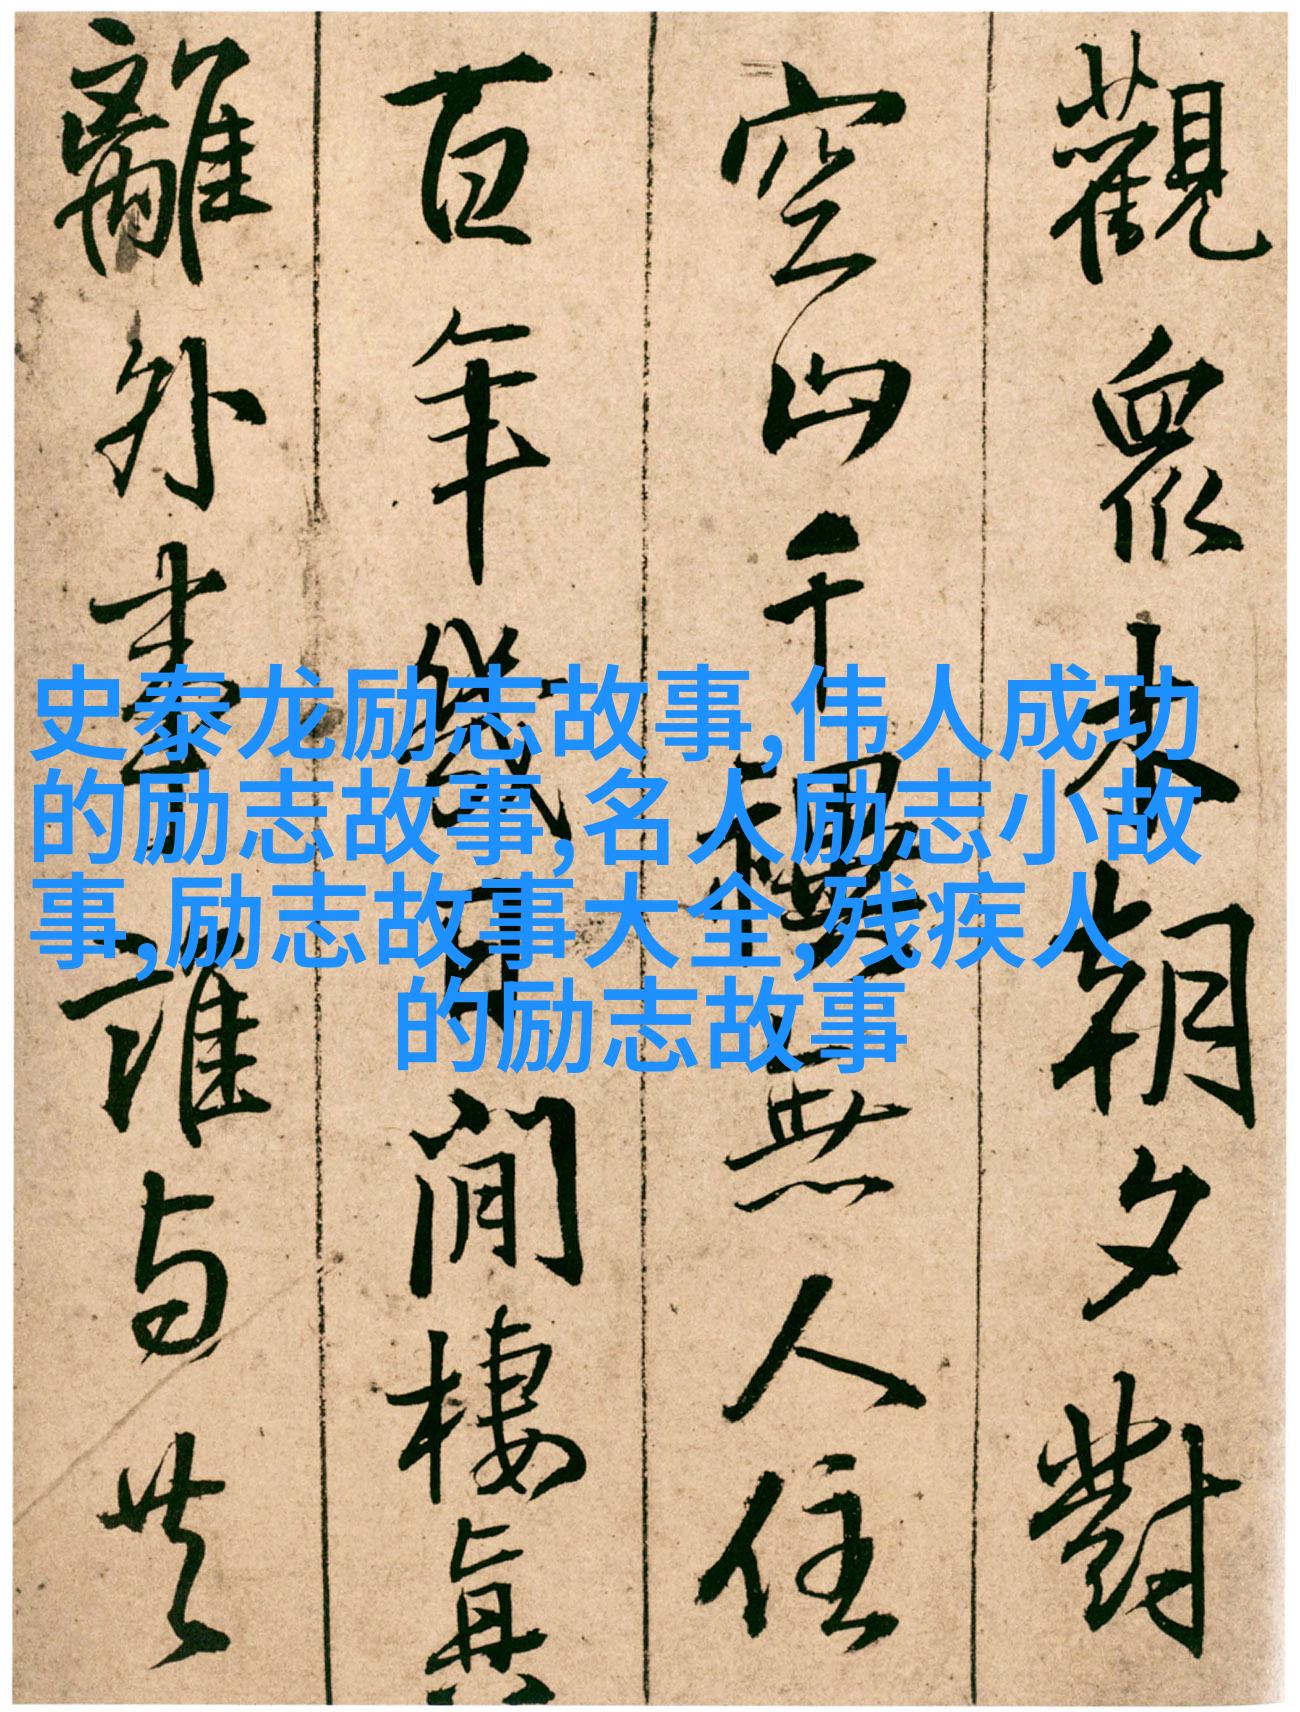 史泰龙励志故事,伟人成功
的励志故事,名人励志小故
事,励志故事大全,残疾人
的励志故事
觀眾木朝夕對
空山千無人住
百年幾日閒棲真
離外書誰与共